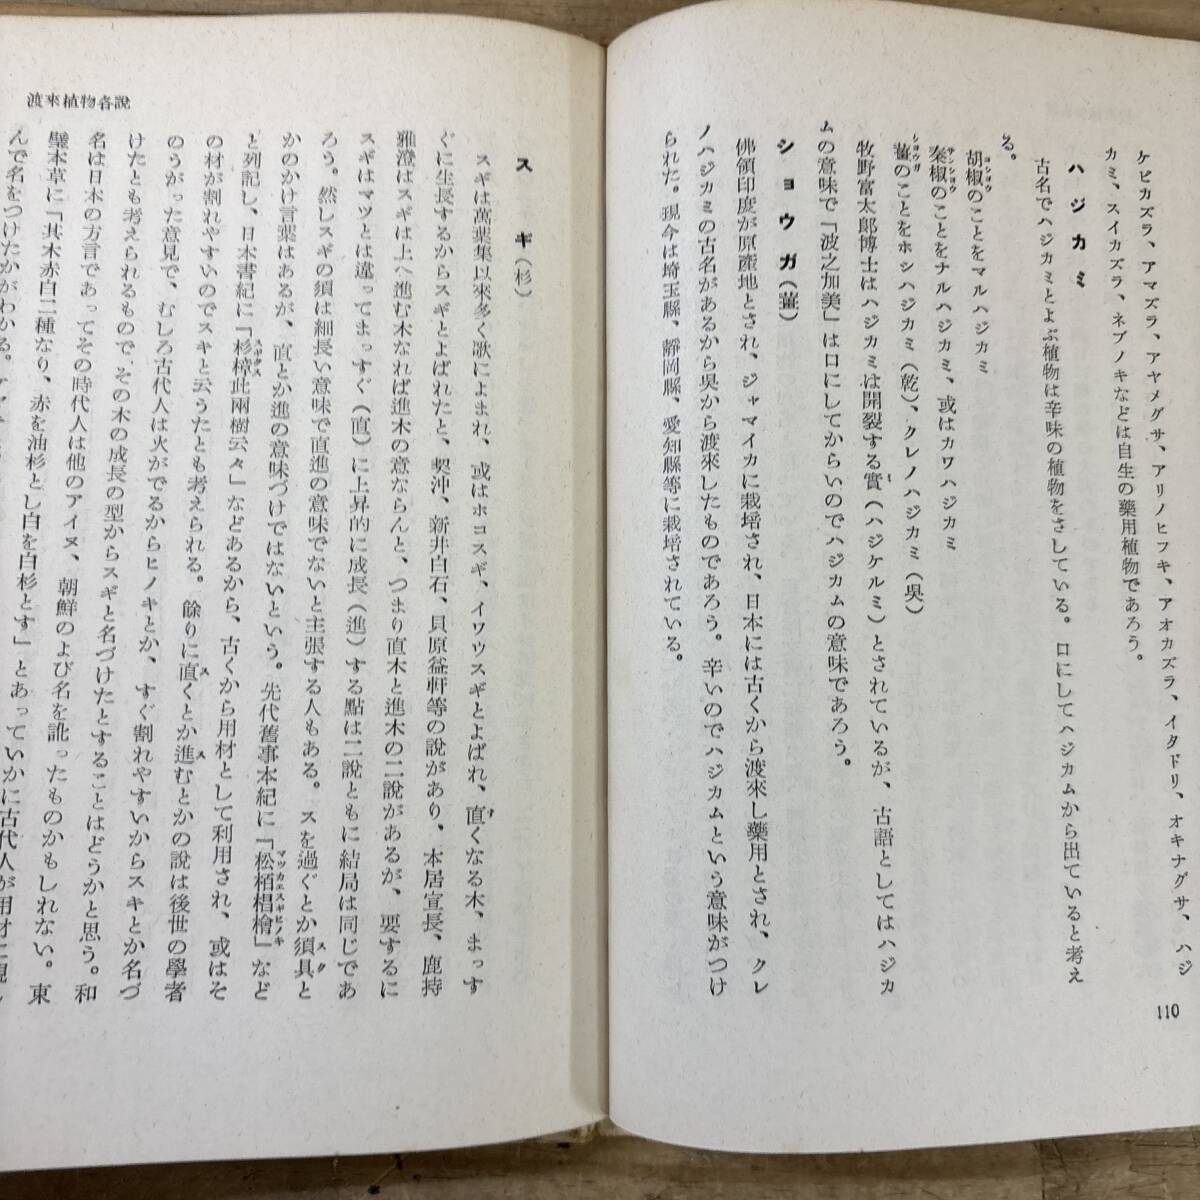 ケビカズラ、アマズラ、アヤメグサ、アリノヒフキ、アオカズラ、イタドリ、オキナグサ、ハジ
カミ、スイカズラ、ネブノキなどは自生の藥用植物であろう。
ハジカミ
古名でハジカミとよぶ植物は辛味の植物をさしている。口にしてハジカムから出ていると考え
る。
胡椒のことをマルハジカミ
コシヨウ
秦椒のことをナルハジカミ、或はカワハジカミ
サンシヨウ
薑のことをホシハジカミ（乾）、クレノハジカミ（吳）
シヨウガ
牧野富太郎博士はハジカミは開裂する實（ハジケルミ）とされているが、古語としてはハジカ
ミ
ムの意味で「波之加美」は口にしてからいのでハジカムの意味であろう。
ショウガ（薑）
佛領印度が原産地とされ、ジャマイカに栽培され、日本には古くから渡來し藥用とされ、クレ
ノハジカミの古名があるから吳から渡來したものであろう。辛いのでハジカムという意味がつけ
られた。現今は埼玉縣、靜岡縣、愛知縣等に栽培されている。
110
渡來植物各說
スギ（杉）
スギは萬葉集以來多く歌によまれ、或はホコスギ、イワウスギとよばれ、直くなる木、まっす
す
ぐに生長するからスギとよばれたと、契沖、新井白石、貝原益軒等の說があり、本居宣長、鹿持
雅澄はスギは上へ進む木なれば進木の意ならんと、つまり直木と進木の二說があるが、要するに
スギはマツとは違ってまっすぐ（直）に上昇的に成長（進）する點は二說ともに結局は同じであ
ろう。然しスギの須は細長い意味で直進の意味でないと主張する人もある。スを過ぐとか須具と
スク
かのかけ言葉はあるが、直とか進の意味づけではないという。先代舊事本紀に「松栢椙檜」など
マツカエスギヒノキ
と列記し、日本書紀に「杉樟此兩樹云々」などあるから、古くから用材として利用され、或はそ
スギクス
の材が割れやすいのでスキと云うたとも考えられる。餘りに直くとか進むとかの說は後世の學者
ス
ス
のうがった意見で、むしろ古代人は火がでるからヒノキとか、すぐ割れやすいからスキとか名づ
けたとも考えられるもので、その木の成長の型からスギと名づけたとすることはどうかと思う。和
名は日本の方言であってその時代人は他のアイヌ、朝鮮のよび名を訛ったものかもしれない。東
璧本草に「其木赤白二種なり、赤を油杉とし白を白杉とす」とあっていかに古代人が用材に親し
んで名をつけたかがわかる。